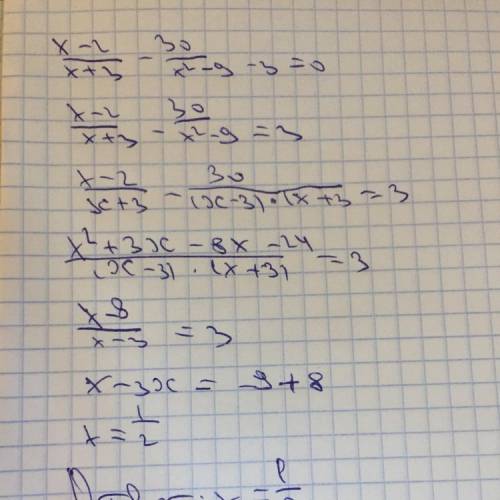 (x-2)/(x+3) - 30/(x²-9) - 3 = 0
(x-2)/(x+3) - 30/(x²-9) = 3
(x-2)/(x+3) - 30/((x-3)·(x+3) = 3
(x²+3x-8x-24)/((x-3)·(x+3)) = 3
(x-8)/(x-3) = 3
x-3x = -9+8
x = 1/2